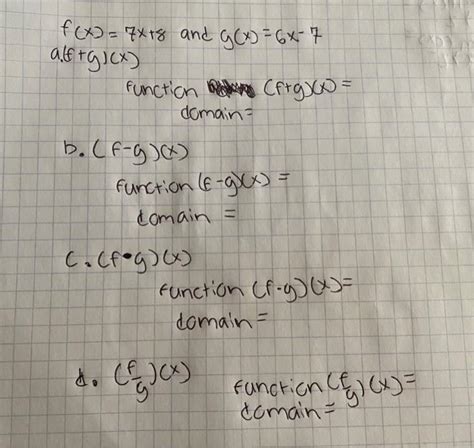 f(x) = 7x+8 and g(x)=6x-7
a.(f+g)(x)
function (f+g)(x)=
domain=
b. (f-g)(x)
function (f-g)(x) =
domain =
c. (f•g)(x)
function (f·g)(x)=
domain=
d. (f/g)(x)
function (f/g)(x)=
domain=